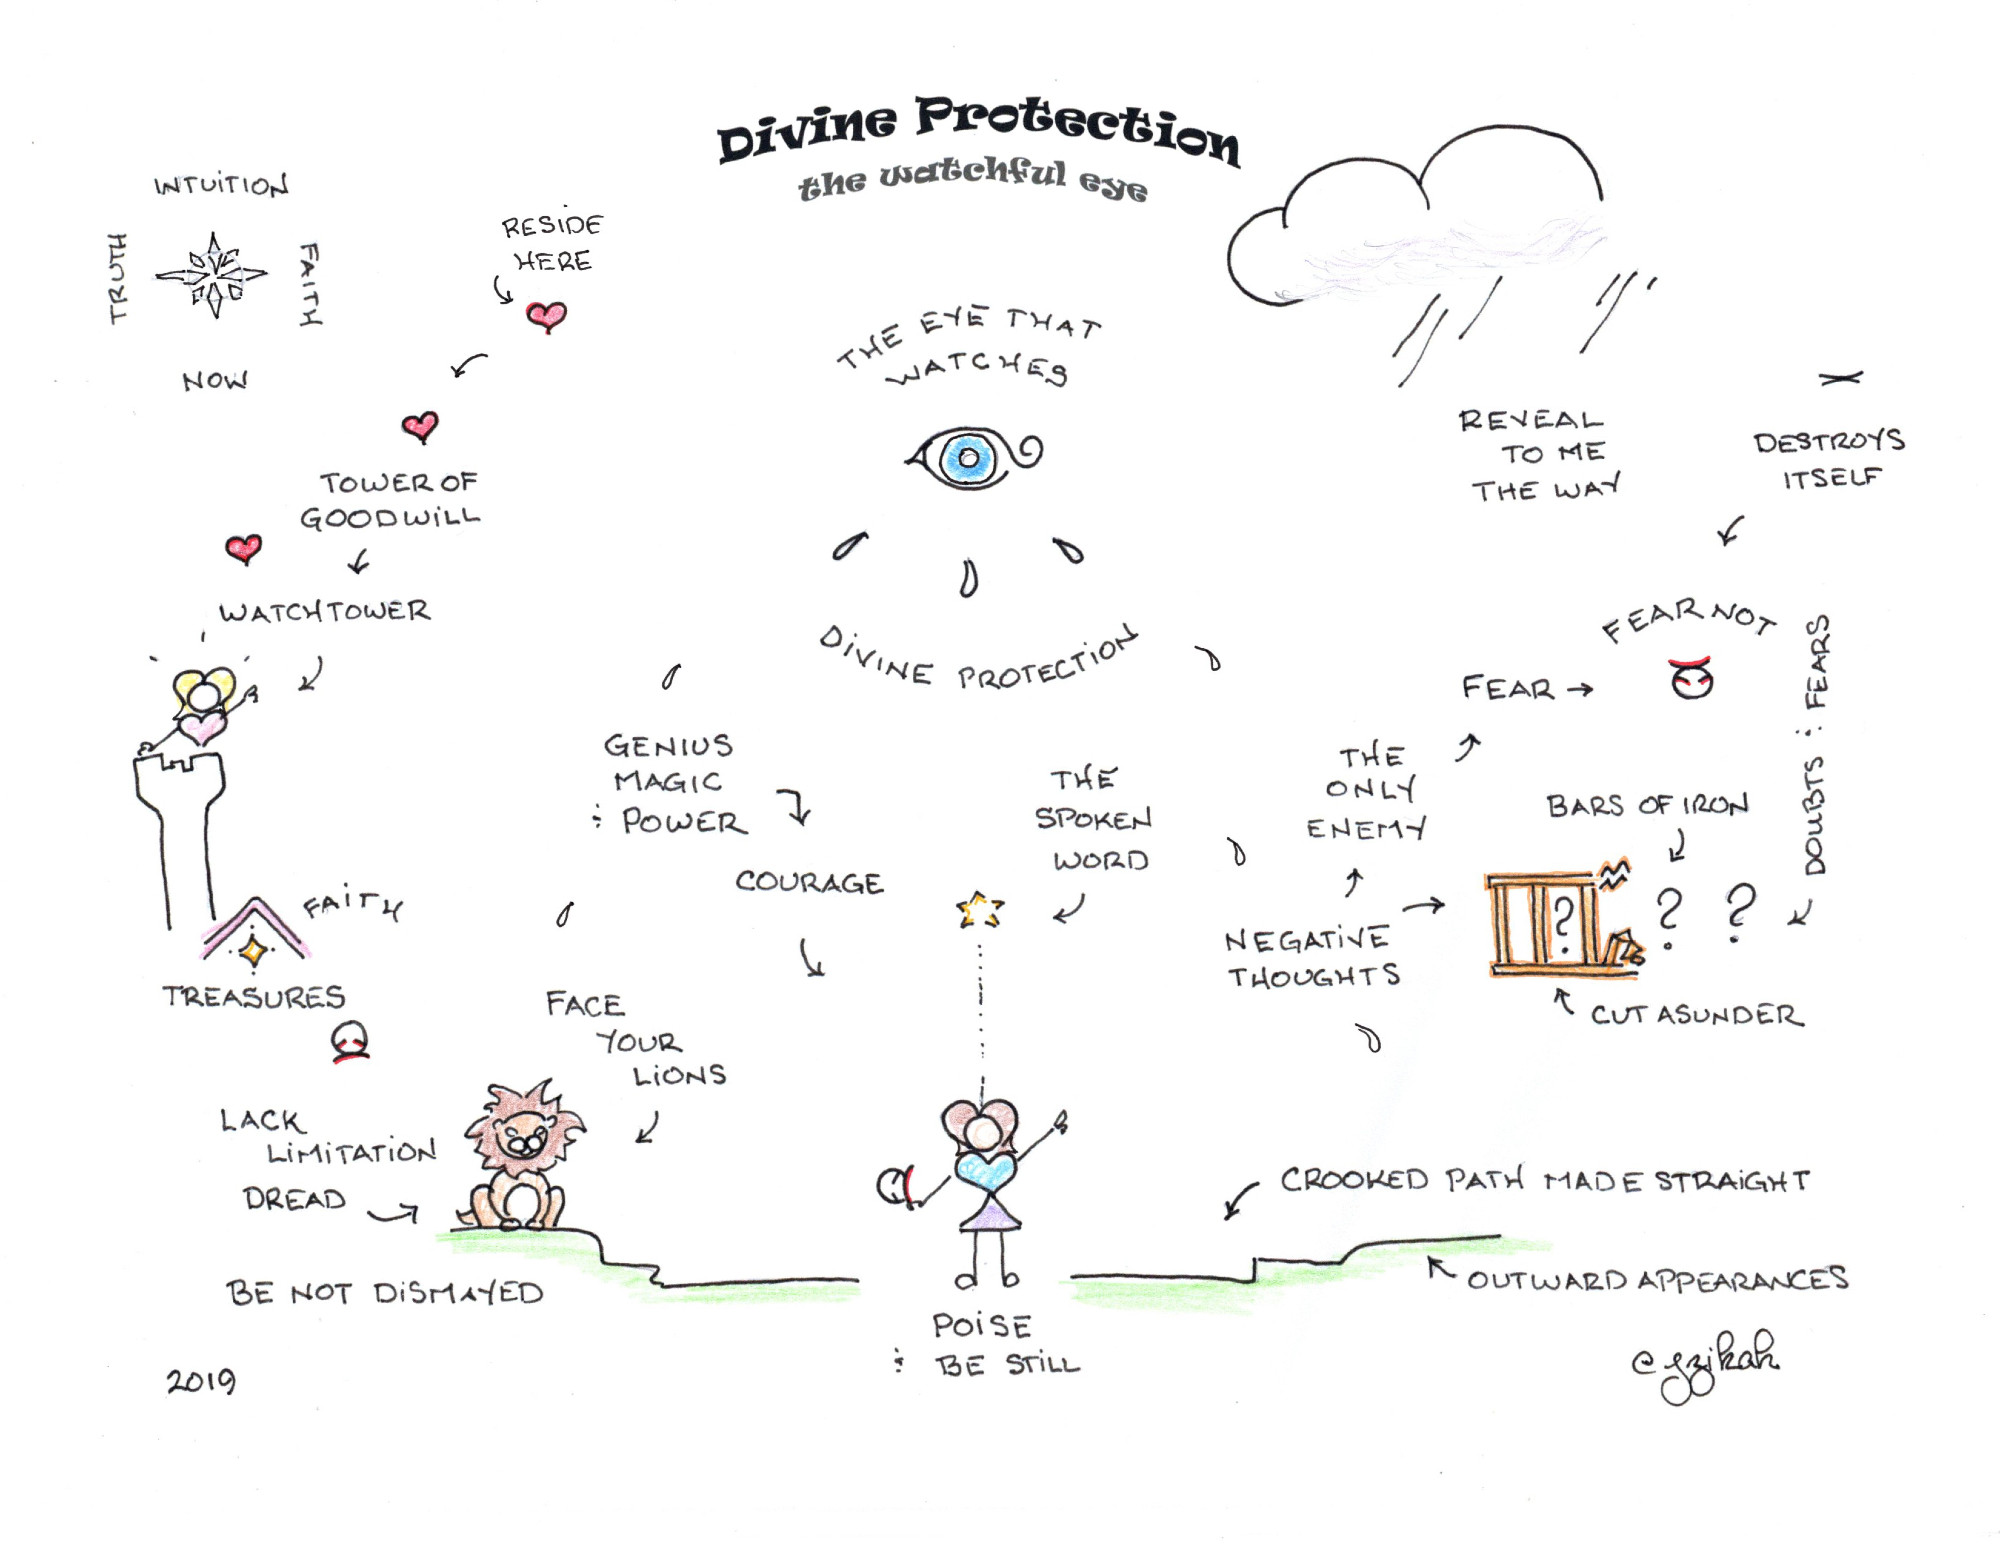 Divine Protection
the watchful eye
INTUITION
TRUTH
FAITH
NOW
RESIDE
HERE
TOWER OF
GOODWILL
WATCHTOWER
FAITH
TREASURES
THE EYE THAT
WATCHES
DIVINE PROTECTION
REVEAL
TO ME
THE WAY
DESTROYS
ITSELF
FEAR NOT
FEAR →
DOUBTS & FEARS
THE
ONLY
ENEMY
BARS OF IRON
? ? ?
NEGATIVE
THOUGHTS
CUT ASUNDER
GENIUS
MAGIC
& POWER
COURAGE
THE
SPOKEN
WORD
FACE
YOUR
LIONS
LACK
LIMITATION
DREAD
BE NOT DISMAYED
CROOKED PATH MADE STRAIGHT
OUTWARD APPEARANCES
POISE
& BE STILL
2019